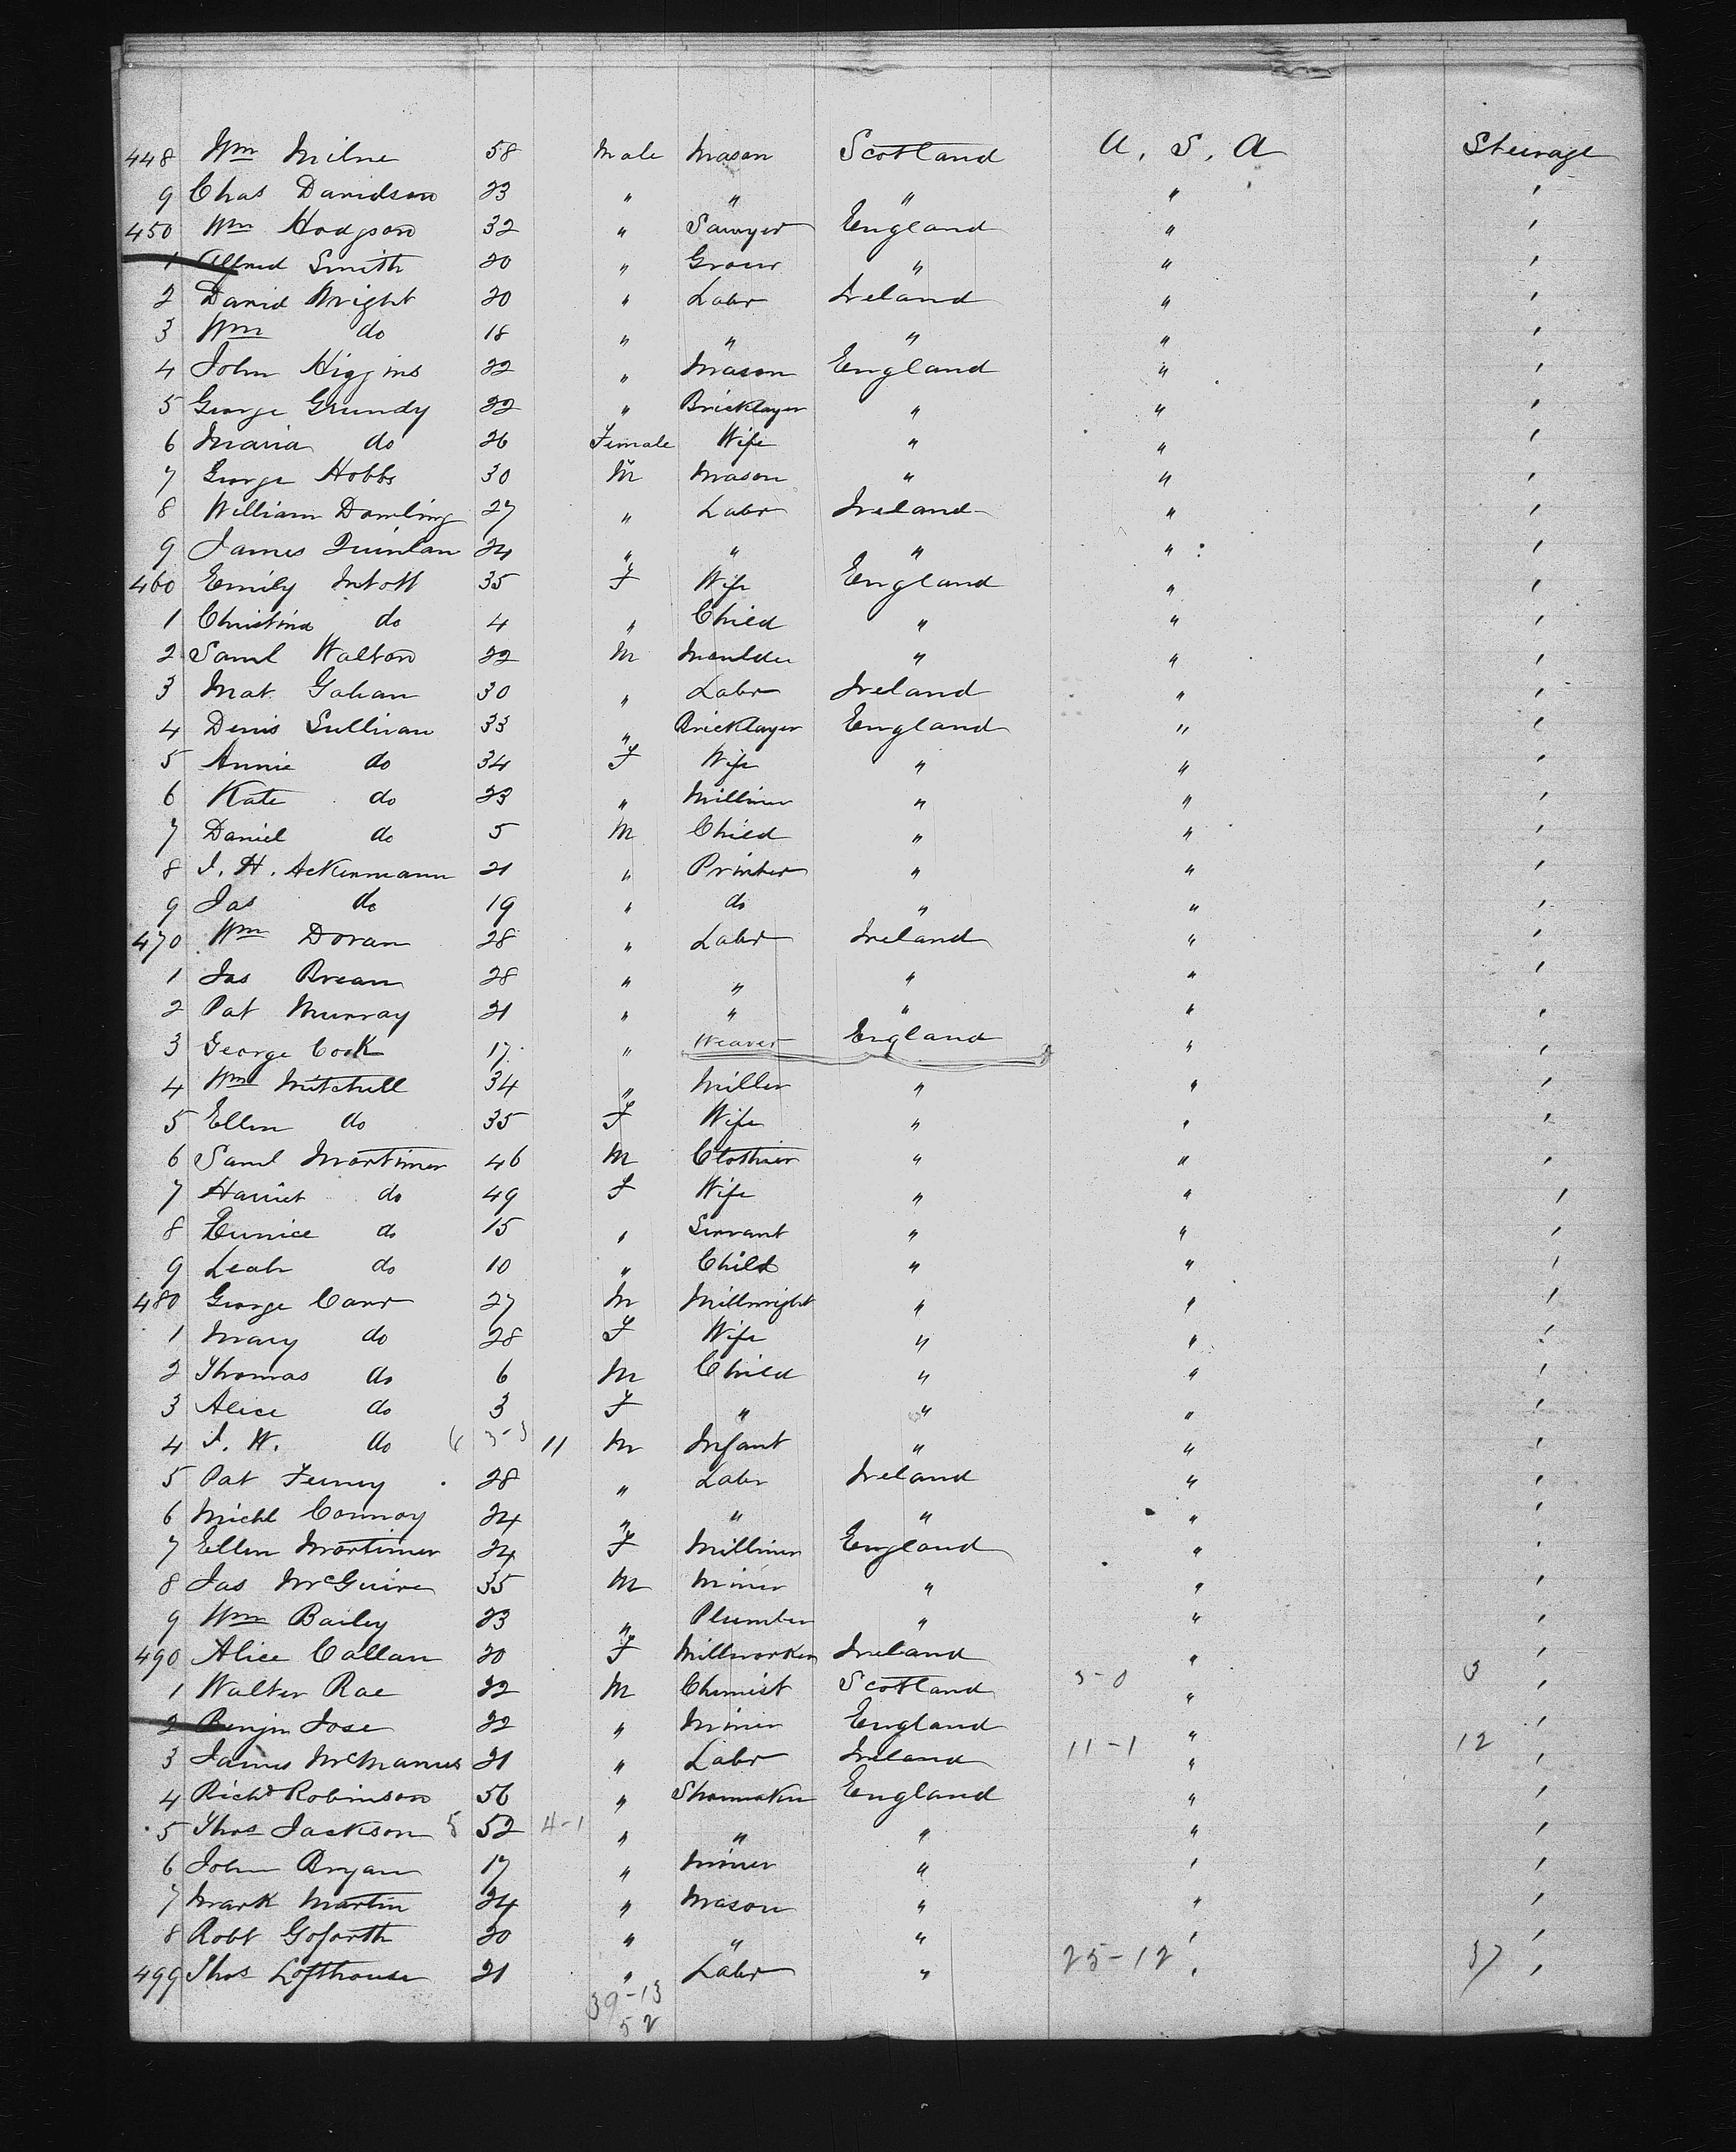 448 Wm Milne 58 Male Mason Scotland U. S. A Steerage
9 Chas Davidson 23 " " " " '
450 Wm Hodgson 32 " Sawyer England " '
1 Alfred Smith 20 " Grocer " " '
2 David Wright 20 " Labr Ireland " '
3 Wm do 18 " " " " '
4 John Higgins 22 " Mason England " '
5 George Grundy 22 " Bricklayer " " '
6 Maria do 26 Female Wife " " '
7 George Hobbs 30 M Mason " " '
8 William Dowling 27 " Labr Ireland " '
9 James Quinlan 24 " " " " '
460 Emily 35 F Wife England " '
1 Christina do 4 " Child " " '
2 Saml Walton 22 M Moulder " " '
3 Mat Gahan 30 " Labr Ireland " '
4 Denis Sullivan 33 " Bricklayer England " '
5 Annie do 34 F Wife " " '
6 Kate do 23 " Milliner " " '
7 Daniel do 5 M Child " " '
8 J. H. Ackermann 21 " Printer " " '
9 Jas do 19 " do " " '
470 Wm Doran 28 " Labr Ireland " '
1 Jas Brean 28 " " " " '
2 Pat Murray 21 " " " " '
3 George Cook 17 " Weaver England " '
4 Wm Mitchell 34 " Miller " " '
5 Ellen do 35 F Wife " " '
6 Saml Mortimer 46 M Clothier " " '
7 Harriet do 49 F Wife " " '
8 Eunice do 15 " Servant " " '
9 Leah do 10 " Child " " '
480 George Carr 27 M Millwright " " '
1 Mary do 28 F Wife " " '
2 Thomas do 6 M Child " " '
3 Alice do 3 F " " " '
4 J. W. do 11 M Infant " " '
5 Pat Feeney 28 " Labr Ireland " '
6 Michl Conroy 24 " " " " '
7 Ellen Mortimer 24 F Milliner England " '
8 Jas McGuire 35 M Miner " " '
9 Wm Bailey 23 " Plumber " " '
490 Alice Callan 20 F Millworker Ireland " '
1 Walter Rae 22 M Chemist Scotland 3-0 " 3 '
2 Benjn Jose 22 " Miner England " '
3 James McManus 21 " Labr Ireland 11-1 " 12 '
4 Richd Robinson 56 " Shoemaker England " '
5 Thos Jackson 5 52 4-1 " " " " '
6 John Bryan 17 " Miner " " '
7 Mark Martin 24 " Mason " " '
8 Robt Goforth 20 " " " " '
499 Thos Lofthouse 21 " Labr " 25-12 " 37 '
39-13
52